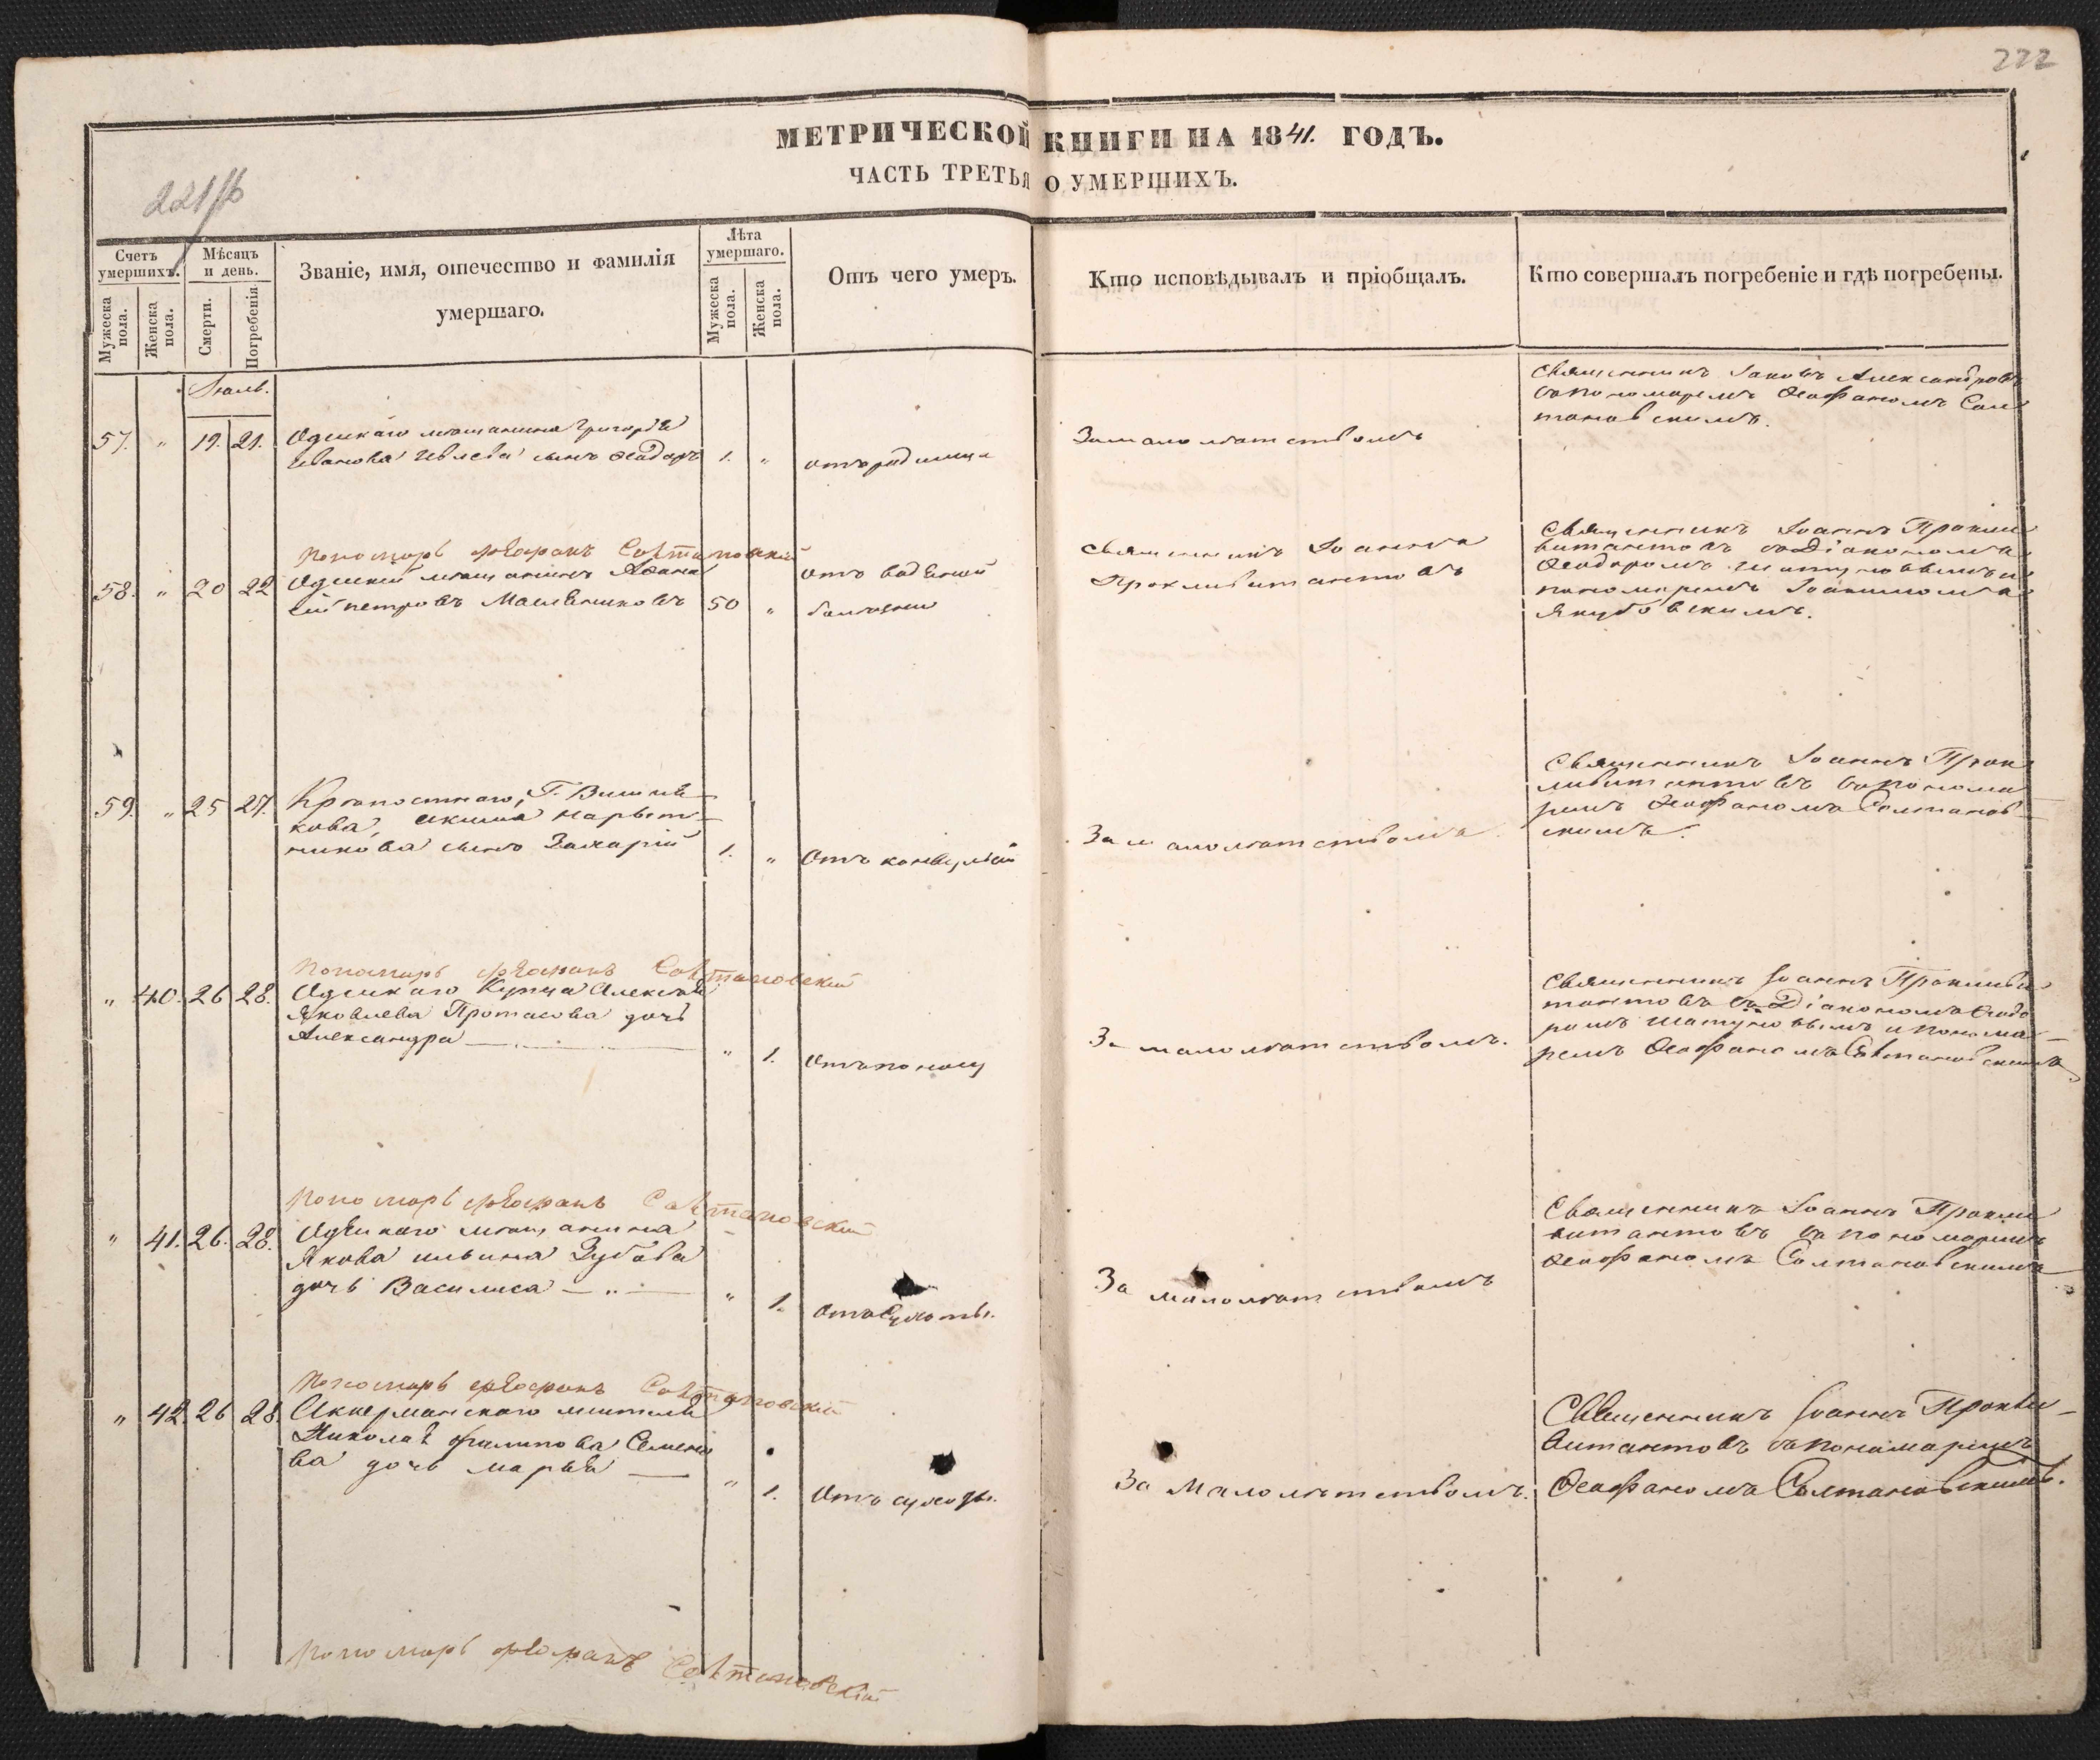 222
МЕТРИЧЕСКОЙ КНИГИ НА 1841. ГОДЪ.
ЧАСТЬ ТРЕТЬЯ О УМЕРШИХЪ.
221/б
Счетъ умершихъ.
Мужеска пола.
Женска пола.
Мѣсяцъ и день.
Смерти.
Погребенія
Званіе, имя, отечество и фамилія
умершаго.
Лѣта умершаго.
Мужеска пола.
Женска пола.
Отъ чего умеръ.
Кто исповѣдывалъ и пріобщалъ.
Кто совершалъ погребеніе и гдѣ погребены.
Іюль.
57. " 19. 21.
Одескаго мѣщанина Григорія
Иванова сынъ Феодоръ 1. "
отъ родимца
За малолѣтствомъ
Священникъ Іаковъ Александровъ
съ пономаремъ Феофаномъ Сол
тановскимъ.
Пономарь Феофанъ Солтановскій
58. " 20 22
Одескій мѣщанинъ Афана
сій Петровъ Масленниковъ 50 "
отъ водяной
болѣзни
Священникъ Іоаннъ
Проклвитантовъ
Священникъ Іоаннъ Прокли
витантовъ съ Діакономъ
Феодоромъ Шатуновымъ и
пономаремъ Іоакимомъ
Якубовскимъ.
59. " 25 27.
Крѣпостнаго, Г. Вишня
кова, Акима
сынъ Захарій 1. "
Отъ конвульсій
За малолѣтствомъ
Священникъ Іоаннъ Прок
ливитантовъ съ понома
ремъ Феофаномъ Солтанов
скимъ.
Пономарь Феофанъ Солтановскій
" 40. 26 28.
Одескаго Купца Алексѣя
Яковлева Протасова дочь
Александра " 1.
Отъ поносу
За малолѣтствомъ.
Священникъ Іоаннъ Прокливи
тантовъ съ Діакономъ Феодо
ромъ Шатуновымъ и понома
ремъ Феофаномъ Солтановскимъ
Пономарь Феофанъ Солтановскій
" 41. 26. 28.
Одескаго мѣщанина
Якова Ильина Зубова
дочь Василиса " 1.
отъ Сухоты.
За малолѣтствомъ
Священникъ Іоаннъ Прокли
витантовъ съ пономаремъ
Феофаномъ Солтановскимъ
Пономарь Феофанъ Солтановскій
" 42. 26 28.
Аккерманскаго жителя
Николая Филипова Семено
ва дочь Марья " 1.
Отъ сухоты.
За малолѣтствомъ.
Священникъ Іоаннъ Прокли
витантовъ съ пономаремъ
Феофаномъ Солтановскимъ.
Пономарь Феофанъ Солтановскій